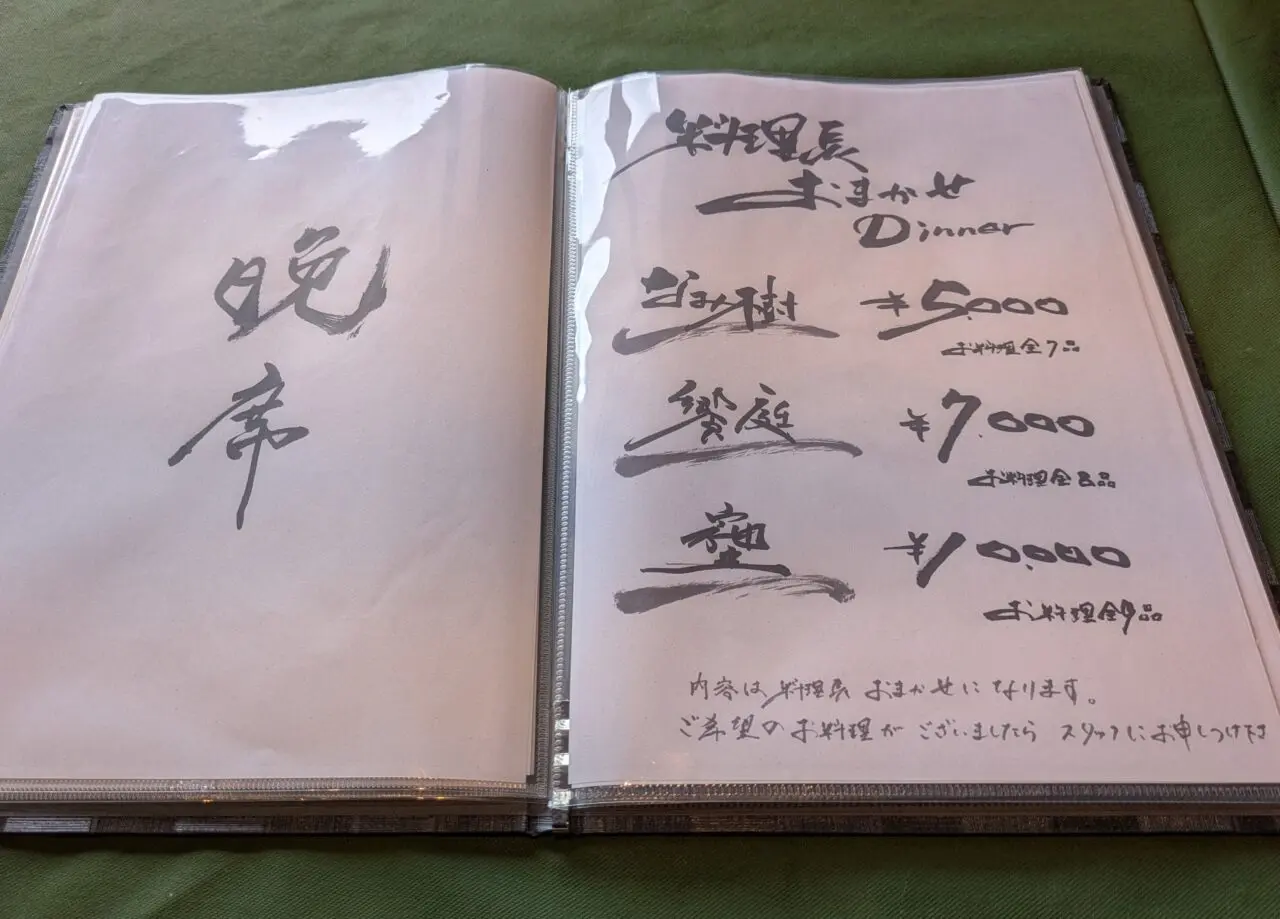 晩
席
料理長
おまかせ
Dinner
なみ樹 ¥5.000
お料理全7品
饗庭 ¥7.000
お料理全8品
¥10.000
お料理全9品
内容は料理長おまかせになります。
ご希望のお料理がございましたらスタッフにお申しつけ下さ